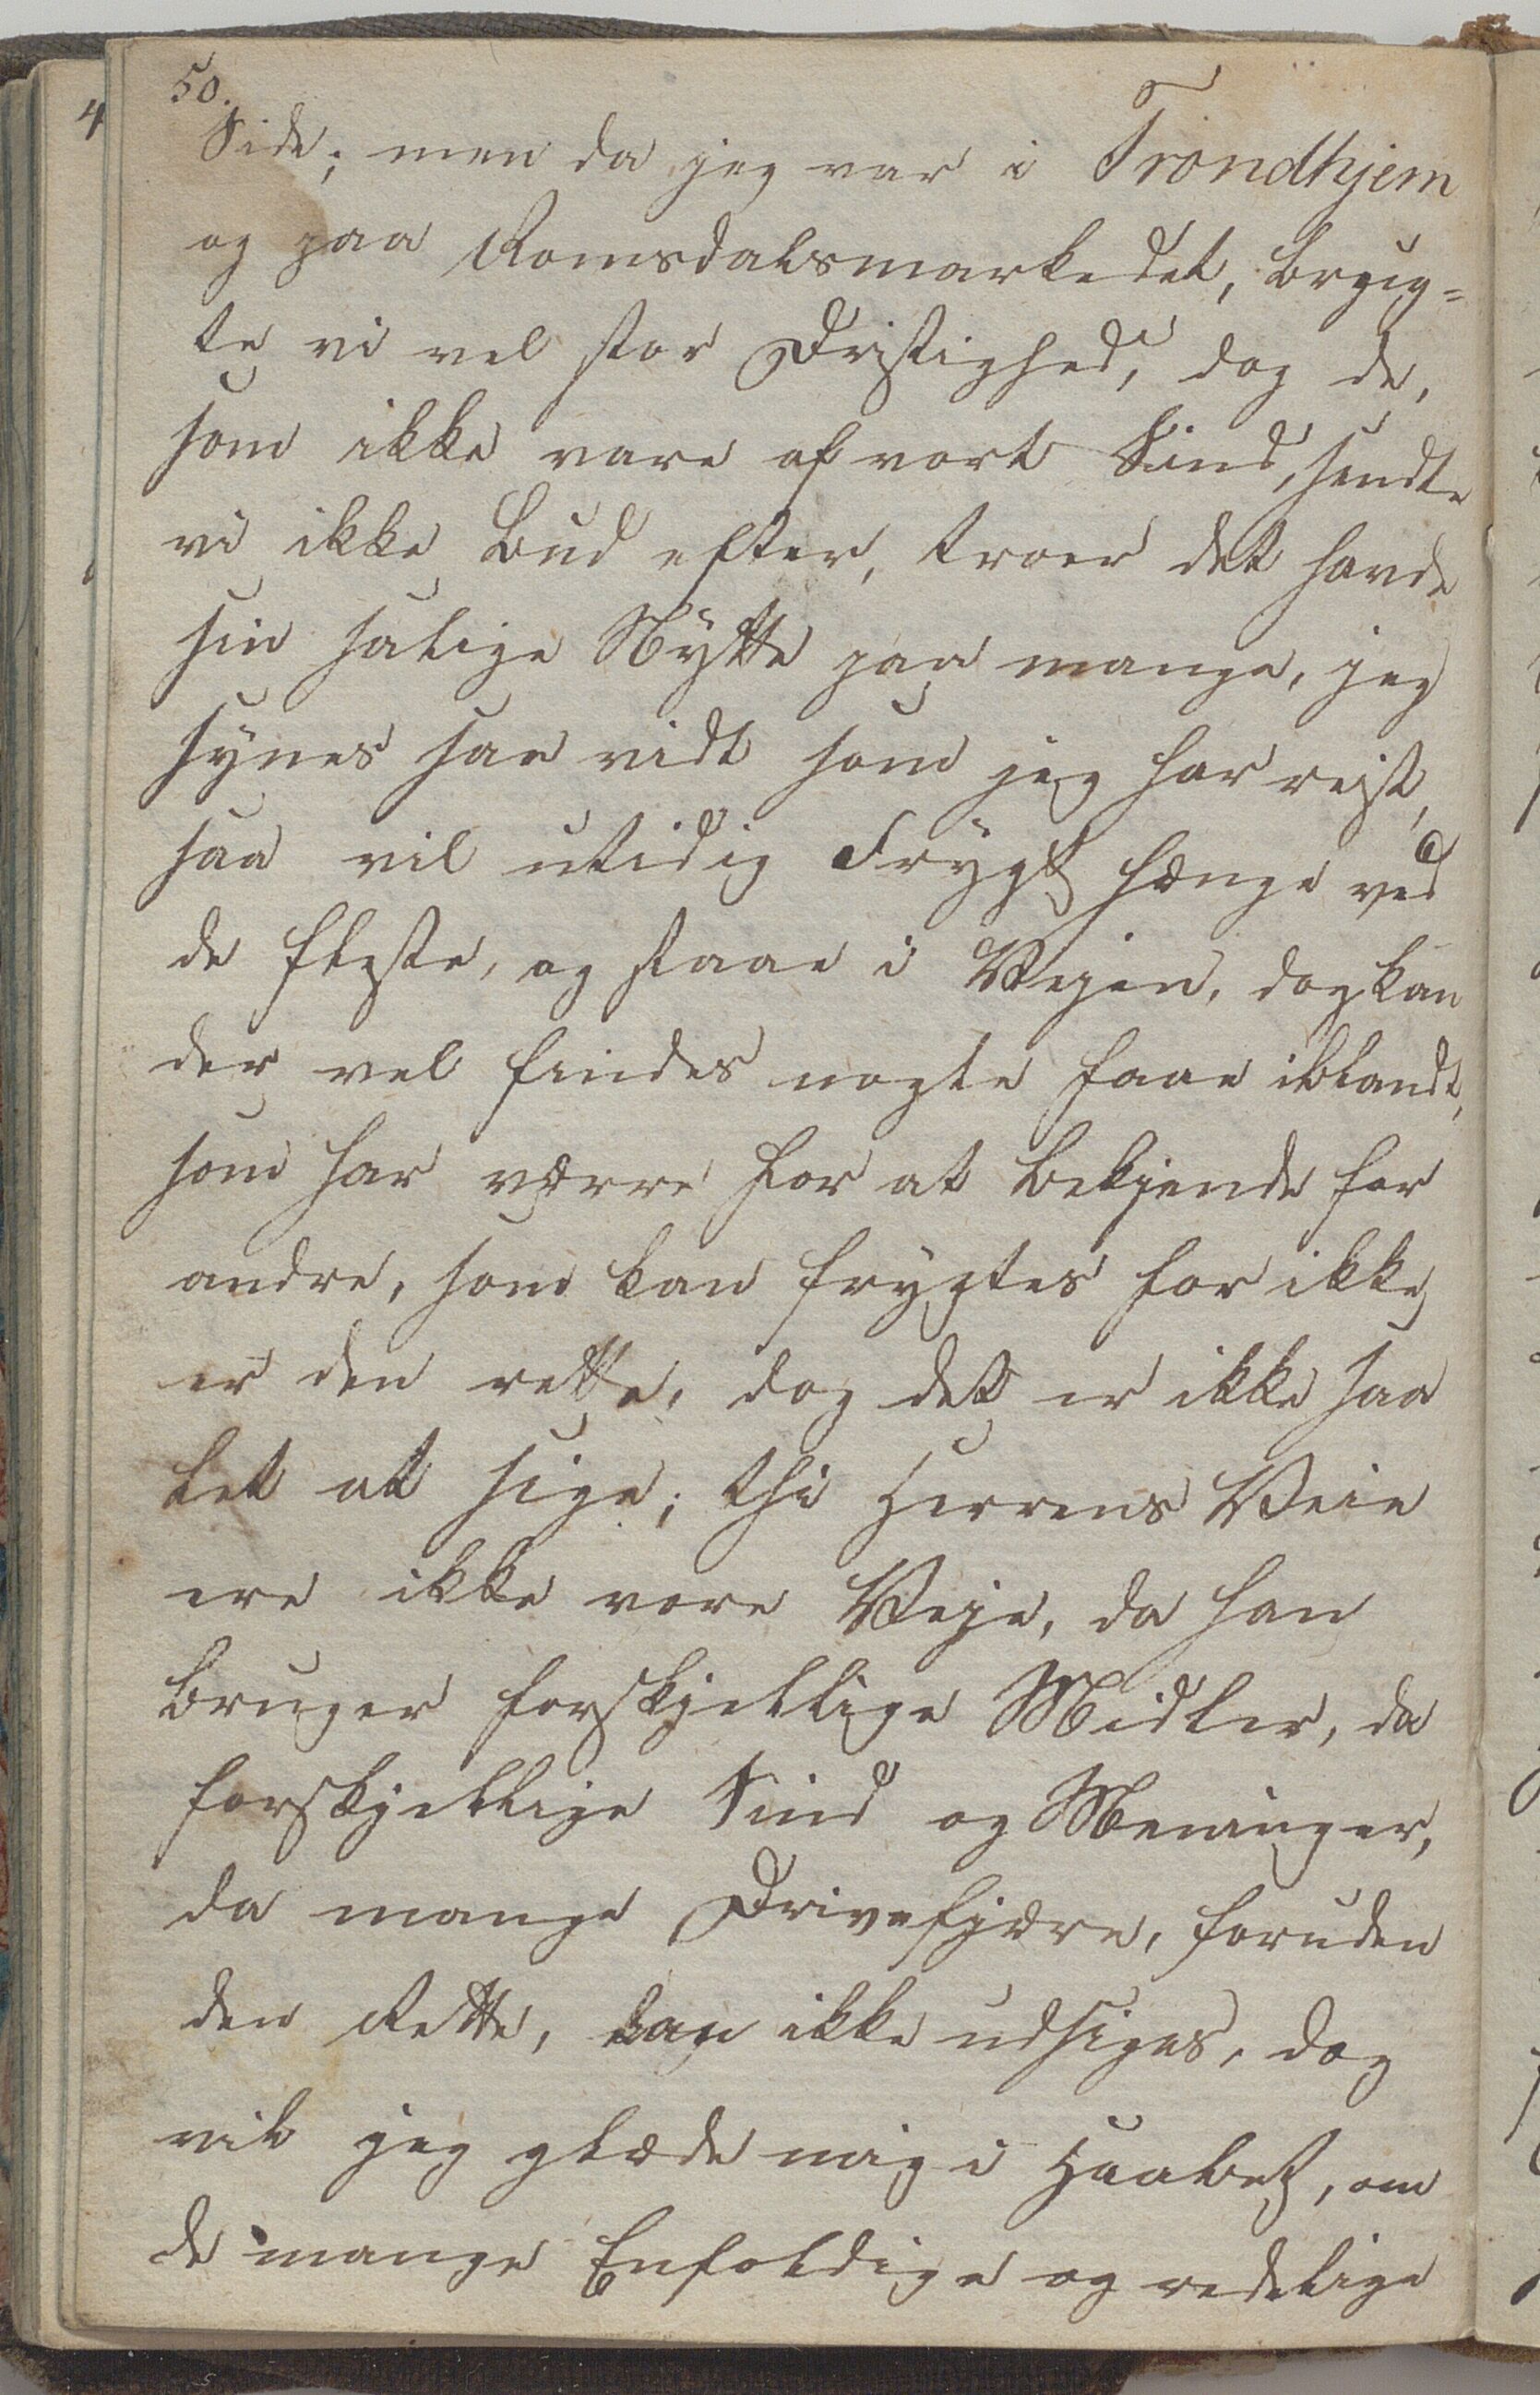 50.
Side; men da jeg var i Trondhjem
og paa Romsdalsmarkedet, brug-
te vi vel stor Dristighed, dog de,
som ikke vare af vort Sind, sendte
vi ikke Bud efter, troer det havde
sin salige Nÿtte paa mange, jeg
sÿnes saa vidt som jeg har reist,
saa vil utidig Frÿgt hænge ved
de fleste, og staae i Vejen, dog kan
der vel findes nogle faae iblandt,
som har værre for at bekjende for
andre, som kan frygtes for ikke
er den rette, dog det er ikke saa
let at sige; thi Herrens Veie
ere ikke vore Veje, da han
bruger forskjellige Midler, da
forskjellige Sind og Meninger,
da mange Drivefjædre, foruden
den Rette, kan ikke udsiges, dog
vil jeg glæde mig i Haabet, om
de mange Enfoldige og redelige
4